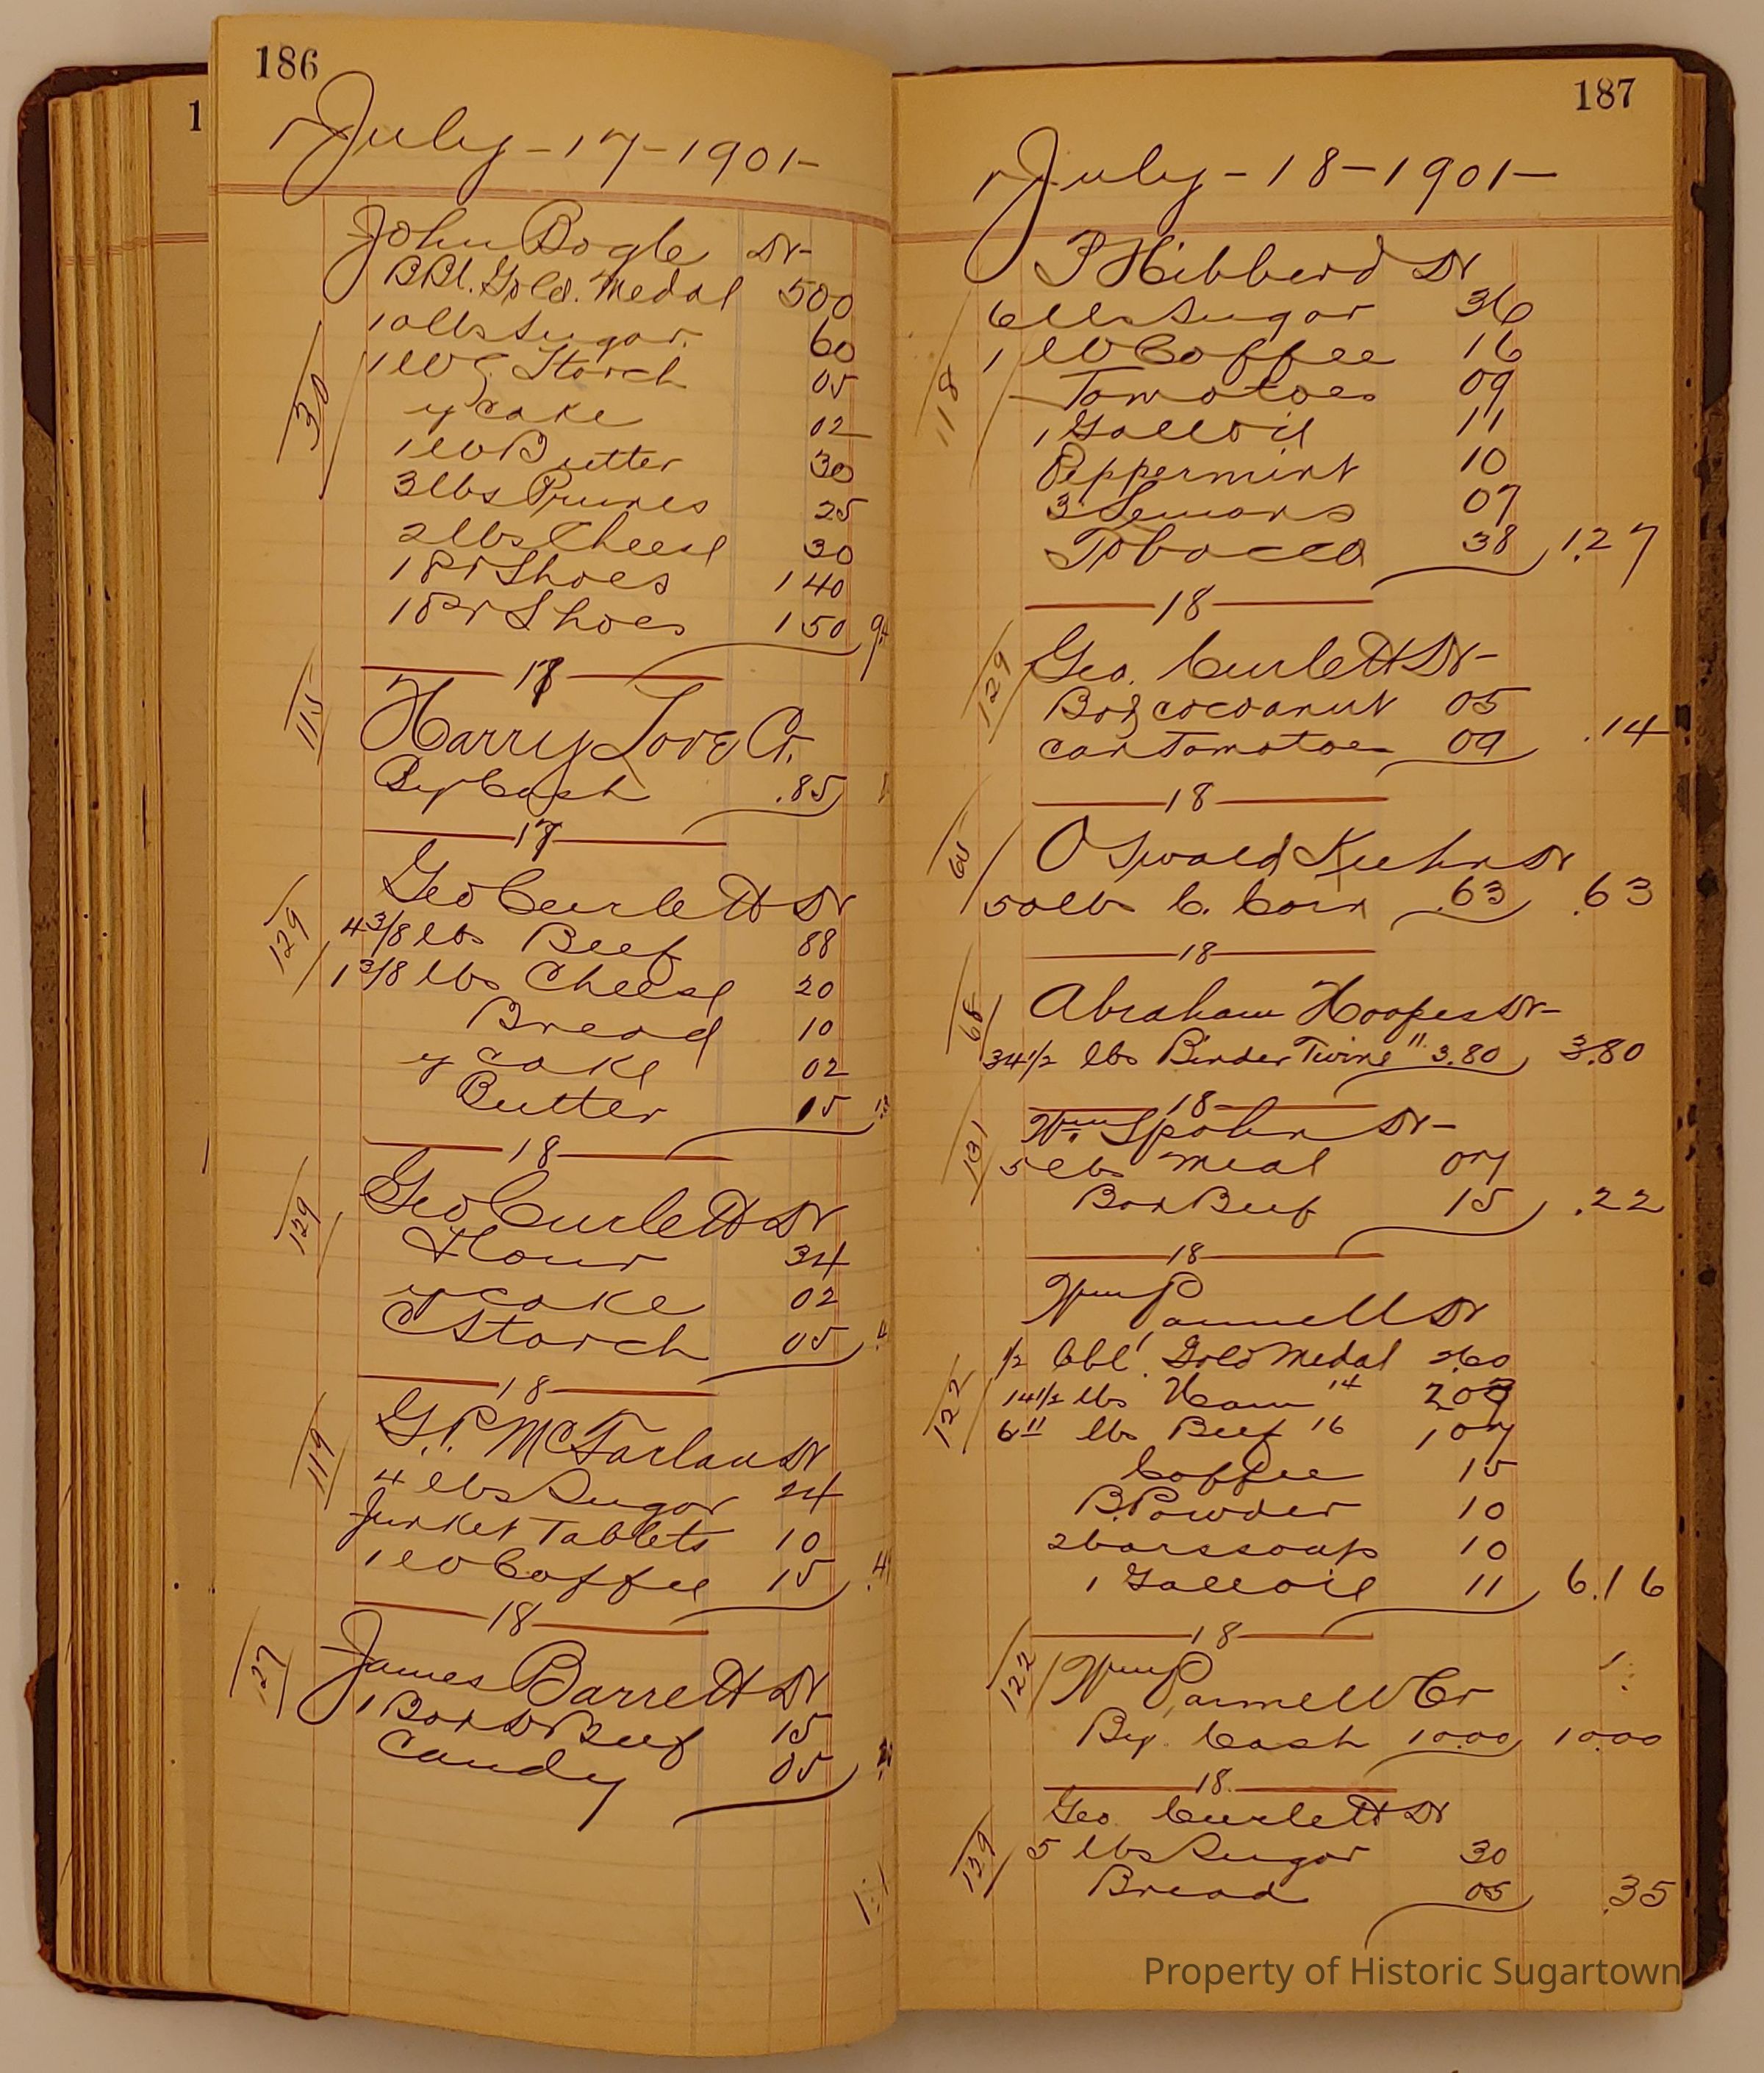 186
July-17-1901-
John Bogle Dr-
BBl. Gold. Medal 500
10 lbs Sugar. 60
1 lb C Starch 05
30
y cake 02
1 lb Butter 30
3 lbs Prunes 25
2 lbs Cheese 30
1 Pr Shoes 140
1 Pr Shoes 150
17
115 Harry Love Cr.
By Cash .85
17
Geo Curlett Dr
129 4 3/8 lbs Beef 88
1 3/8 lbs Cheese 20
Bread 10
y cake 02
Butter 15
18
129 Geo Curlett Dr
Flour 34
y cake 02
C Starch 05
18
G.P. McFarlan Dr
119 4 lbs Sugar 24
Junket Tablets 10
1 lb Coffee 15
18
127 James Barrett Dr
1 Box D Beef 15
Candy 05
187
July-18-1901-
T Hibberd Dr
6 lbs Sugar 36
1 lb Coffee 16
118 Tomatoes 09
1 Gall Oil 11
Peppermint 10
3 Lemons 07
Tobacco 38 1.27
18
129 Geo. Curlett Dr-
Box cocoanut 05
can Tomatoes 09 .14
18
65 Oswald Kuehn Dr
50 lbs C. Corn .63 .63
18
68 Abraham Hoopes Dr-
34 1/2 lbs Binder Twine 11 3.80 3.80
18
131 Wm Spohn Dr-
5 lbs Meal 07
Box Beef 15 .22
18
Wm Pannell Dr
1/2 bbl. Gold Medal 2.60
122 14 1/2 lbs Ham 14 203
6 11 lbs Beef 16 1 07
Coffee 15
B. Powder 10
2 bars soap 10
1 Gall oil 11 6.16
18
122 Wm Pannell Cr
By Cash 10.00 10.00
18
Geo. Curlett Dr
129 5 lbs Sugar 30
Bread 05 .35
Property of Historic Sugartown